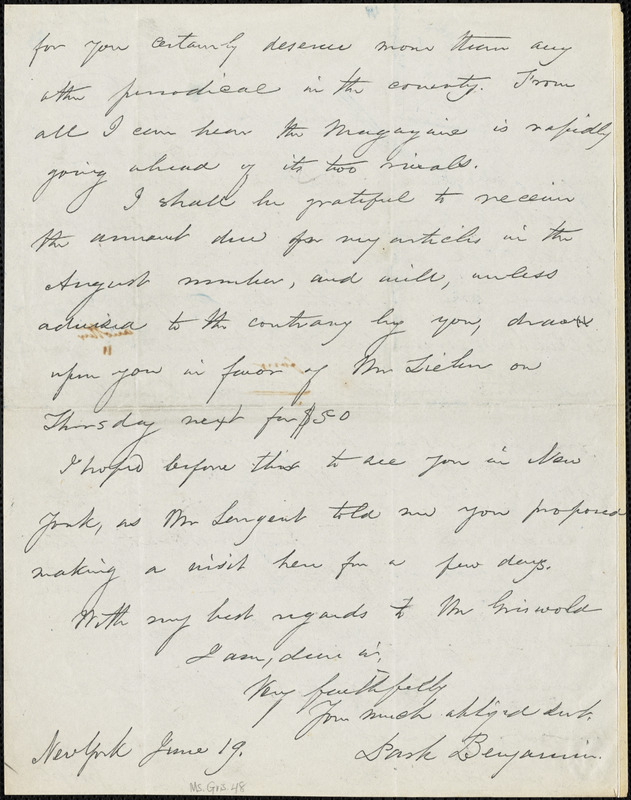 for you certainly deserve more than any
other periodical in the country. From
all I can hear the Magazine is rapidly
going ahead of its two rivals.
I shall be grateful to receive
the amount due for my articles in the
August number, and will, unless
advised to the contrary by you, draw
upon you in favor of Mr on
Thursday next for $50
I hoped before this to see you in New
York, as Mr Sargent told me you proposed
making a visit here for a few days.
With my best regards to Mr Griswold
I am, dear sir,
Very faithfully
Your much obliged svt.
Park Benjamin.
New York June 19.
Ms. Gris. 48